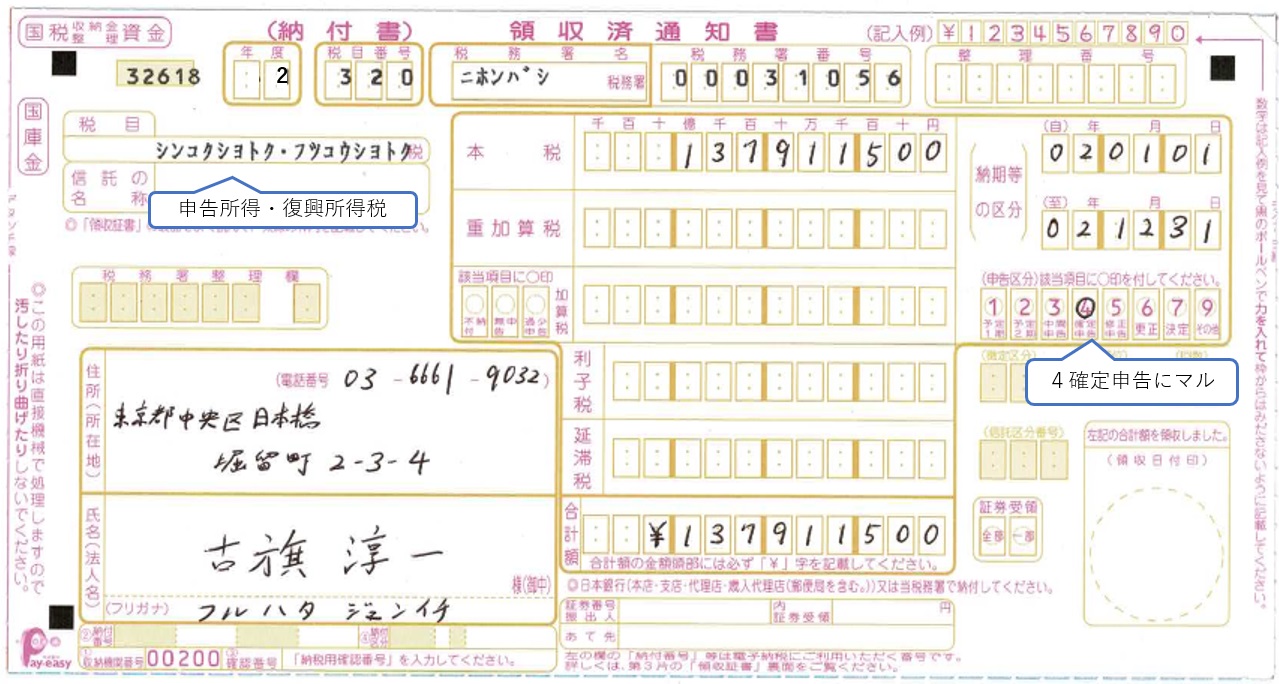 国税収納金整理資金
(納付書)
領収済通知書
(記入例) ¥1234567890
32618
年度
2
税目番号
320
税務署名
ニホンバシ 税務署
税務署番号
00031056
整理番号
国庫金
税目
シンコクシヨトク・フツコウシヨトク税
信託の名称
申告所得・復興所得税
税務署整理欄
千百十億千百十万千百十円
本税
137911500
重加算税
該当項目に〇印
不納付
無申告
過少申告
加算税
利子税
延滞税
合計額
¥137911500
合計額の金額頭部には必ず「¥」字を記載してください。
納期等の区分
(自) 年 月 日
020101
(至) 年 月 日
021231
(申告区分)該当項目に〇印を付してください。
1 予定1期
2 予定2期
3 中間申告
4 確定申告
5 修正申告
6 更正
7 決定
9 その他
4確定申告にマル
(信託区分番号)
証券受領
全部 一部
左記の合計額を領収しました。
(領収日付印)
住所(所在地)
(電話番号 03-6661-9032)
東京都中央区日本橋
堀留町 2-3-4
氏名(法人名)
古旗 淳一
様(御中)
(フリガナ) フルハタ ジュンイチ
◎日本銀行(本店・支店・代理店・歳入代理店(郵便局を含む。))又は当税務署で納付してください。
証券番号
振出人
内証券受領
円
あて先
左の欄の「納付番号」等は電子納税にご利用いただく番号です。
詳しくは、第3片の「領収証書」裏面をご覧ください。
Pay-easy
②納付番号
④納付区分
①収納機関番号 00200
③確認番号
「納税用確認番号」を入力してください。
◎この用紙は直接機械で処理しますので
汚したり折り曲げたりしないでください。
数字は記入例を見て黒のボールペンで力を入れて枠からはみださないように記載してください。